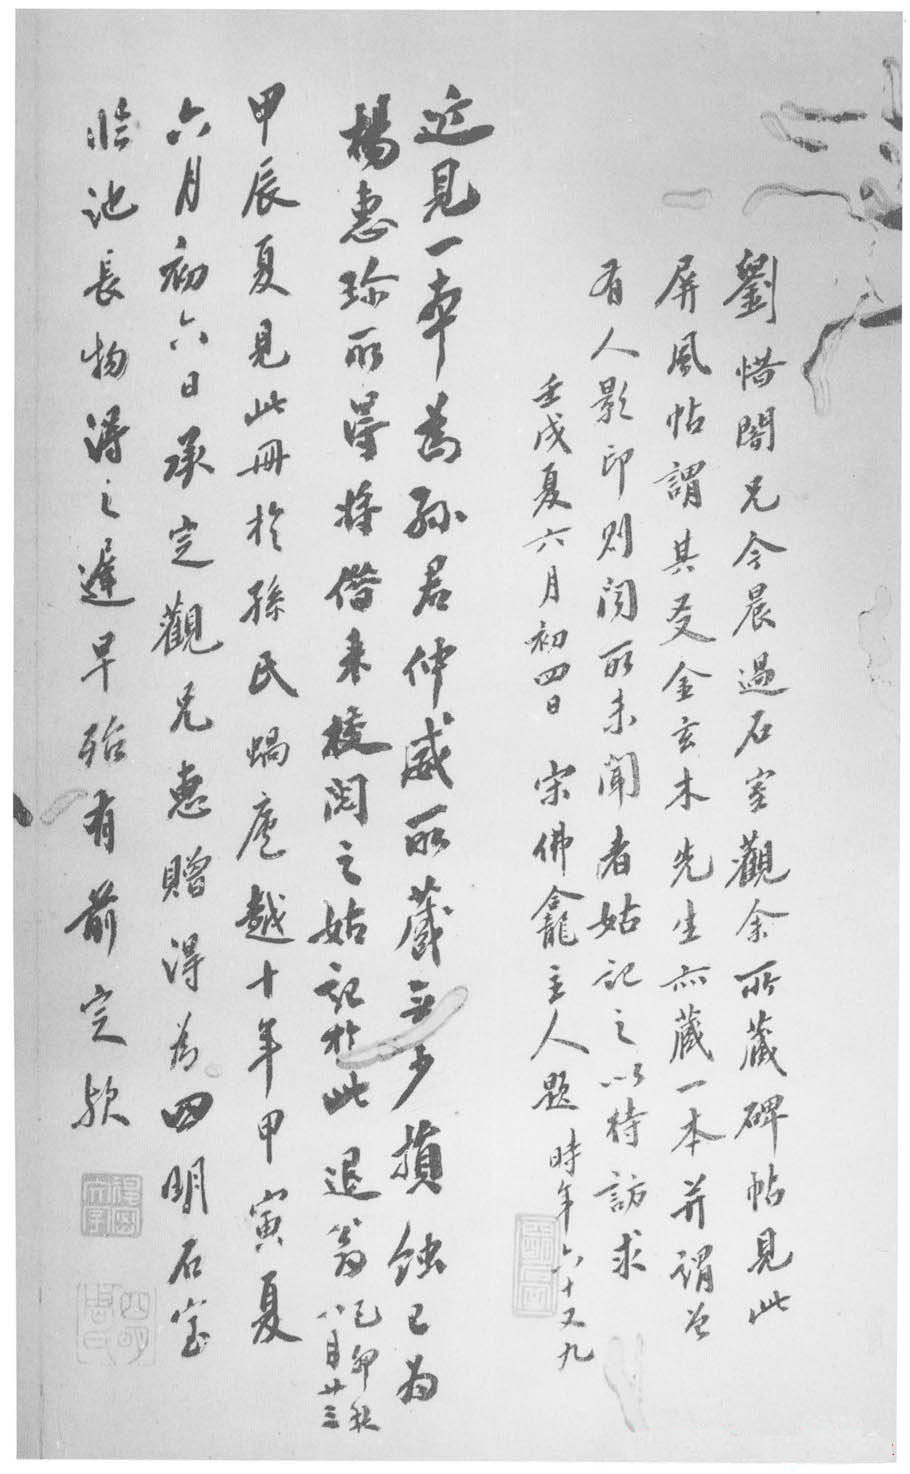 劉惜闇兄今晨過石室觀余所藏碑帖見此
屏風帖謂其友金玄木先生亦藏一本并謂曾
有人影印則聞所未聞者姑記之以待訪求
壬戌夏六月初四日 宋佛龕主人題 時年六十又九
近見一本為孫君仲威所藏無少損蝕已為
楊惠珍所得將借來校閱之姑記於此 退翁 乙卯秋
八月廿三
甲辰夏見此冊於孫氏蝸廬越十年甲寅夏
六月初六日承定觀兄惠贈得為四明石室
臨池長物得之遲早殆有前定歟
四明
周氏